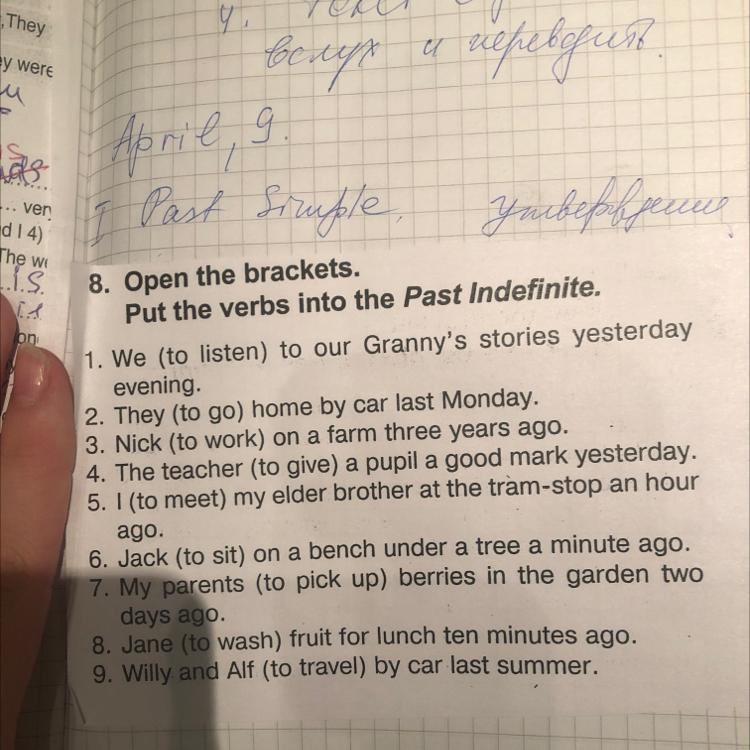 , They
ey were
4. Текст
вслух и переводить.
April, 9.
I Past Simple. Утверждение
... ver
d I 4)
The we
I.S.
on
8. Open the brackets.
Put the verbs into the Past Indefinite.
1. We (to listen) to our Granny's stories yesterday
evening.
2. They (to go) home by car last Monday.
3. Nick (to work) on a farm three years ago.
4. The teacher (to give) a pupil a good mark yesterday.
5. I (to meet) my elder brother at the tram-stop an hour
ago.
6. Jack (to sit) on a bench under a tree a minute ago.
7. My parents (to pick up) berries in the garden two
days ago.
8. Jane (to wash) fruit for lunch ten minutes ago.
9. Willy and Alf (to travel) by car last summer.